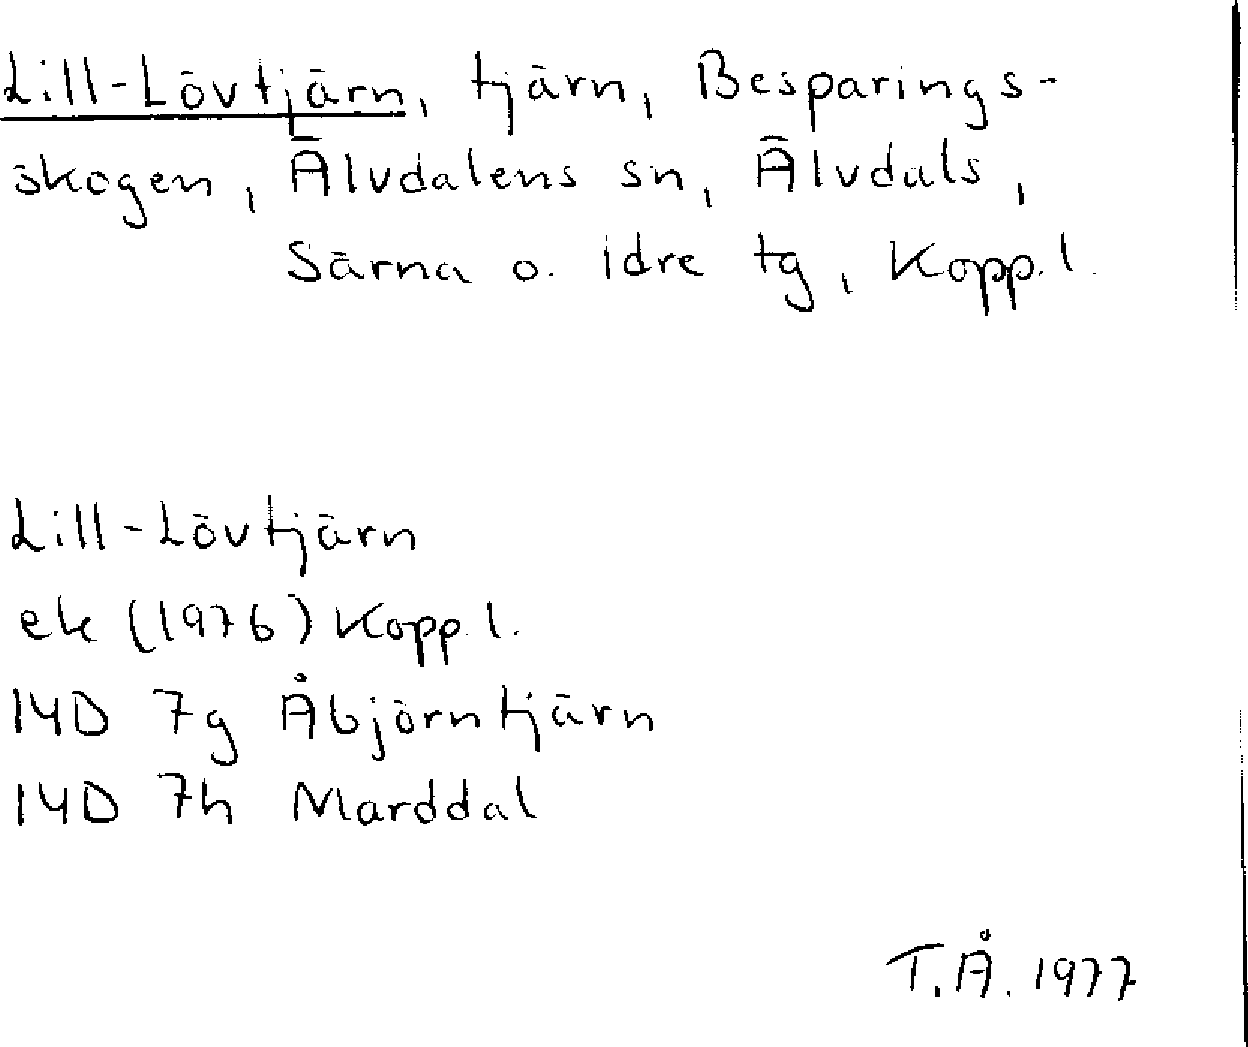 Lill-Lövtjärn, tjärn, Besparings-
skogen, Älvdalens sn, Älvdals,
Särna o. idre tg, Kopp. l.
Lill-Lövtjärn
ek (1976) Kopp. l.
14D 7g Åbjörntjärn
14D 7h Marddal
T.Å. 1977